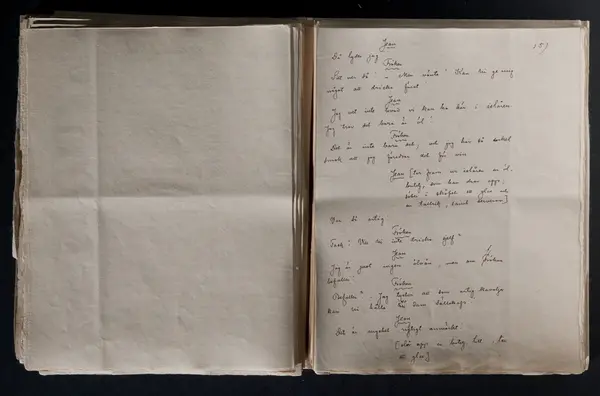 15)
Jean
Då lyder jag
Fröken
Sätt er då! – Men vänta! Kan Ni ge mig
något att dricka först
Jean
Jag vet inte hvad vi kan ha här i islåren
Jag tror det bara är öl!
Fröken
Det är inte bara det; och jag har så enkel
smak att jag föredrar det för vin
Jean [tar fram ur islåren en öl-
butelj, som han drar opp;
söker i skåpet ett glas och
en tallrik, samt serverar]
Var så artig
Fröken
Tack! Vill Ni inte dricka själf?
Jean
Jag är just ingen ölvän, men om Fröken
befaller
Fröken
Befaller? – Jag tycker att som artig kavaljer
kan Ni hålla sällskap.
Jean
Det är mycket riktigt anmärkt!
[slår opp en butelj till, tar
ett glas]